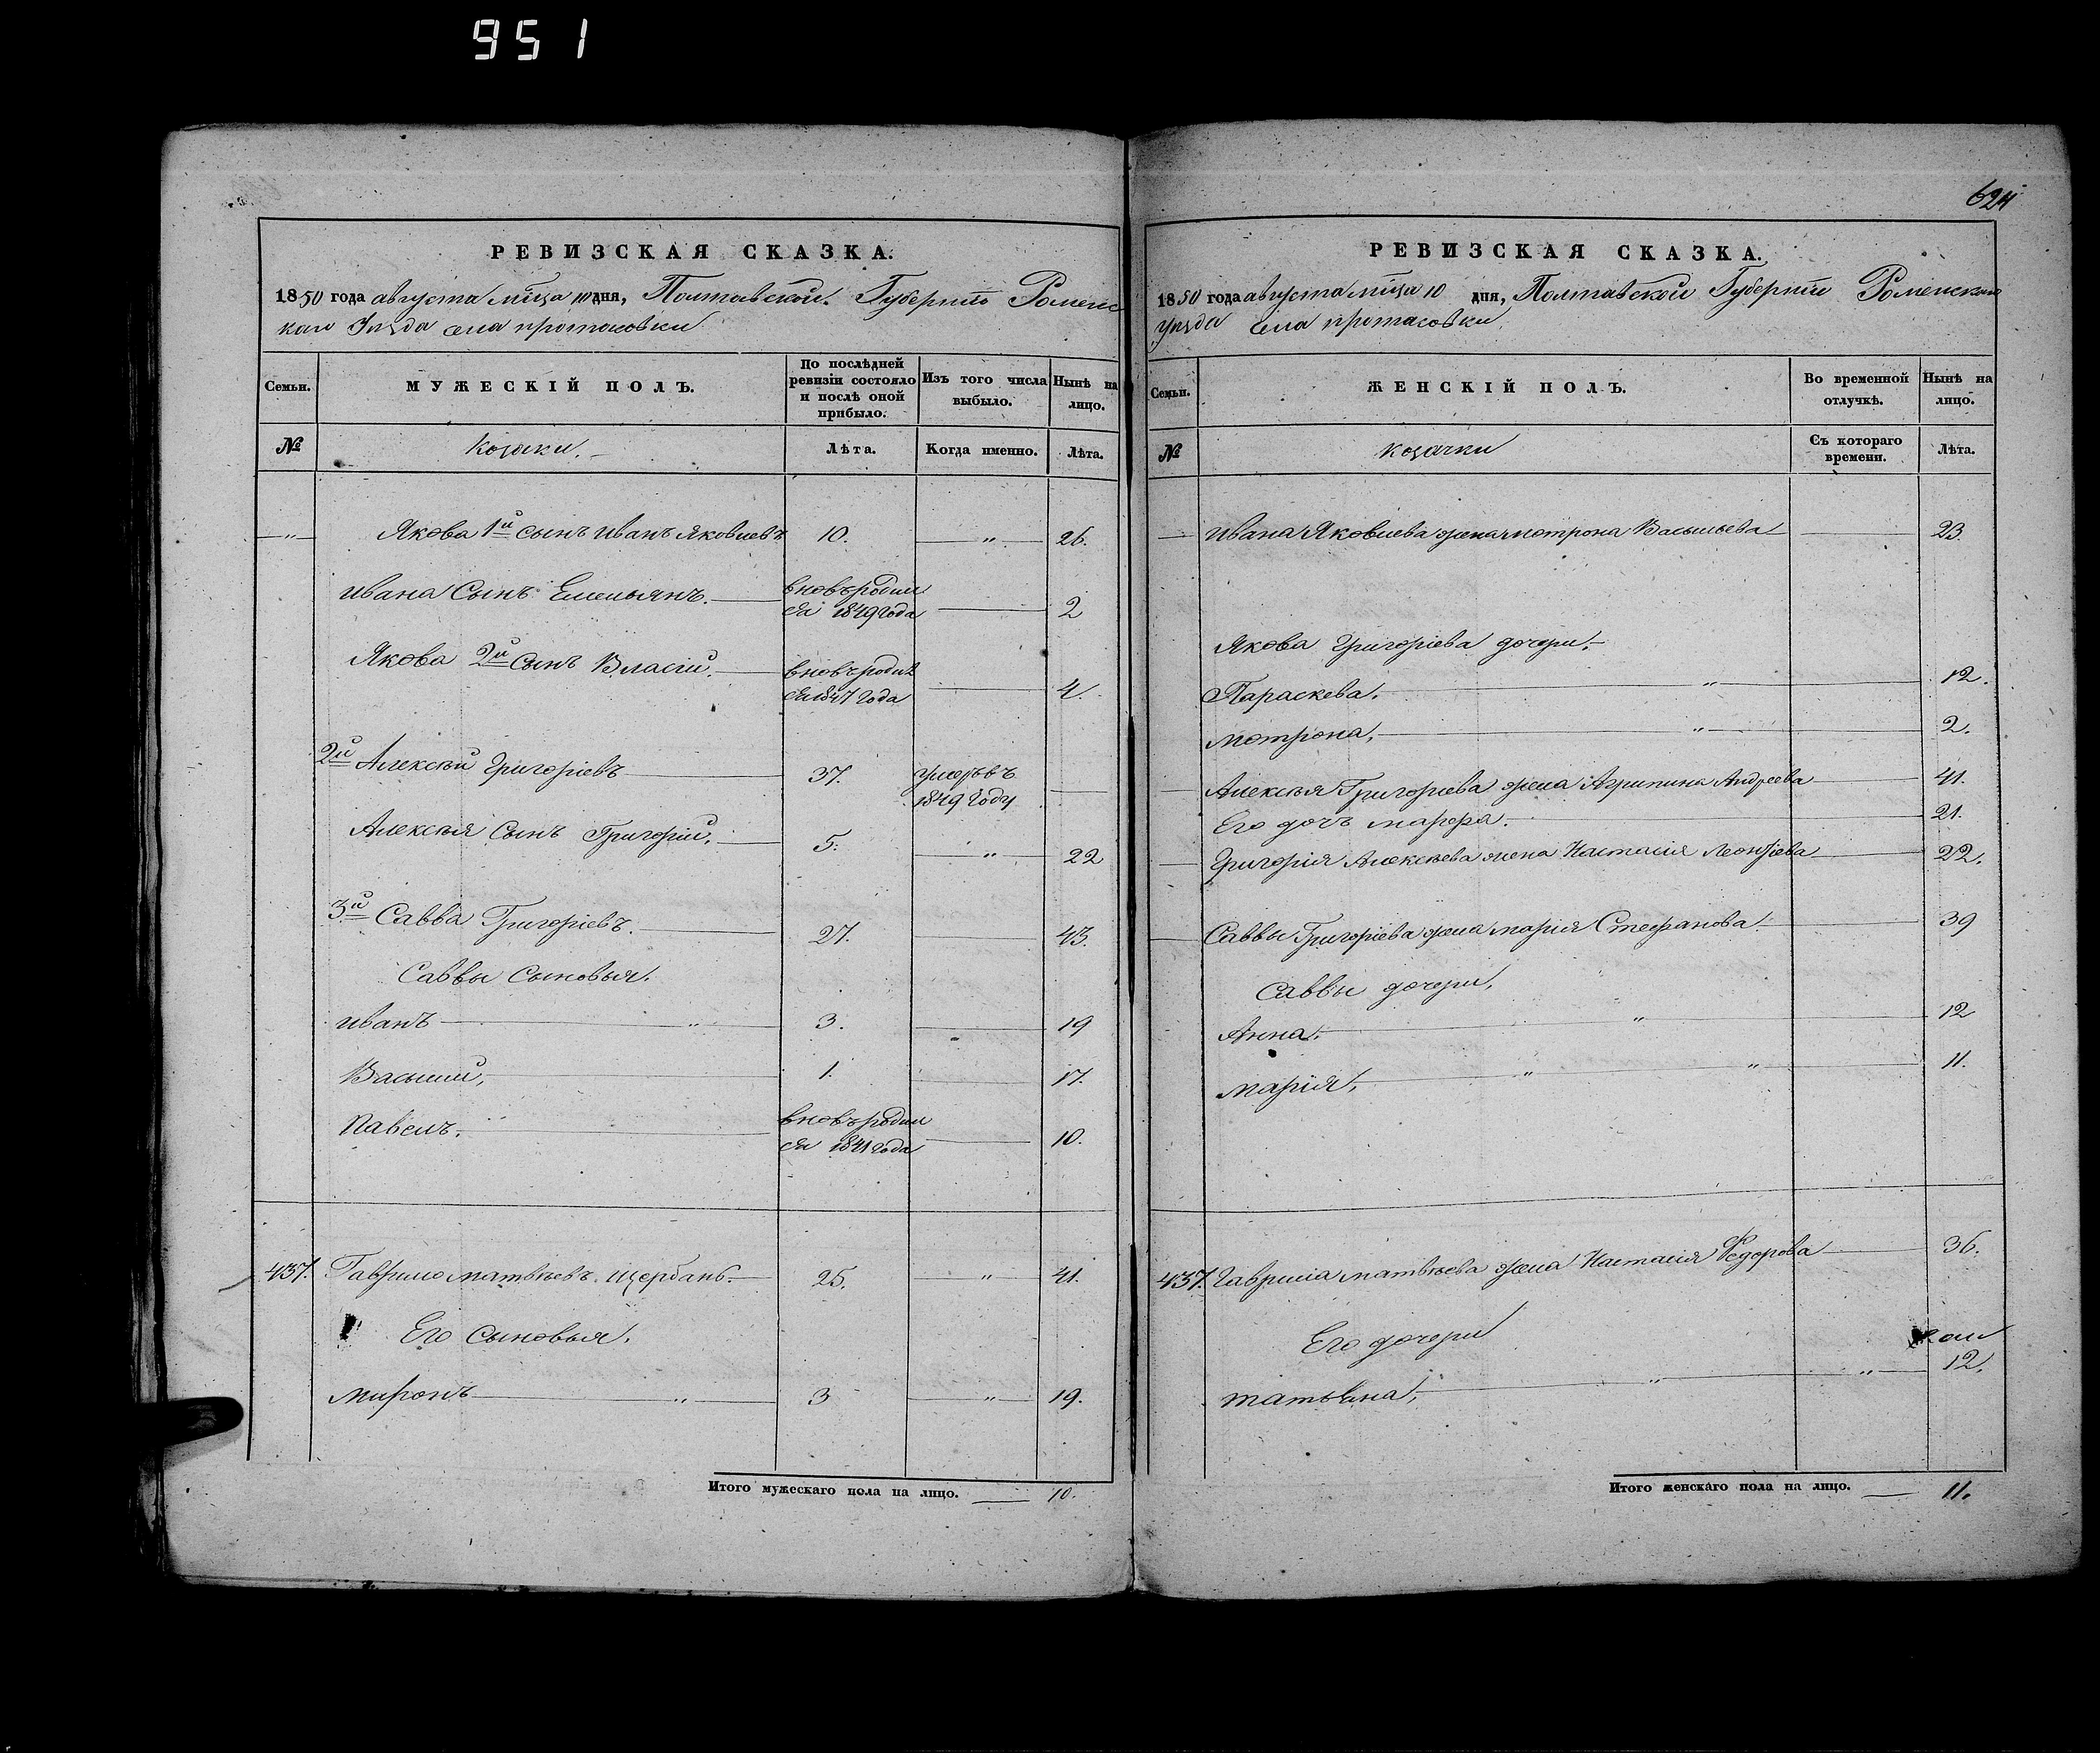 951
624
РЕВИЗСКАЯ СКАЗКА.
1850 года августа мца 10 дня, Полтавской Губернiи Роменс
каго Уезда села протасовки
Семьи.
МУЖЕСКІЙ ПОЛЪ.
По послѣдней ревизіи состояло и послѣ оной прибыло.
Изъ того числа выбыло.
Нынѣ на лицо.
№
козаки.
Лѣта.
Когда именно.
Лѣта.
—"— Якова 1й сынъ иванъ яковлевъ 10. " 26.
ивана Сынъ Емельянъ. вновъ родил
ся 1849 года 2
Якова 2й сынъ Власій. вновъ родил
ся 1847 года 4.
2й Алексѣй Григоріевъ 37. умеръ въ
1849 году
Алексѣя Сынъ Григорій. 5. " 22
3й Савва Григоріевъ. 27. 43.
Саввы Сыновья.
иванъ " 3. 19
Василий, 1. 17.
Павелъ. вновъ родил
ся 1841 года 10.
437. Гаврило матвѣевъ щербань. 25. " 41.
Его Сыновья.
миронъ " 3 " 19.
Итого мужескаго пола на лицо. 10.
РЕВИЗСКАЯ СКАЗКА.
1850 года августа мца 10 дня, Полтавской Губернiи Роменскаго
уезда села протасовки
Семьи.
ЖЕНСКІЙ ПОЛЪ.
Во временной отлучкѣ.
Нынѣ на лицо.
№
козачки
Съ котораго времени.
Лѣта.
ивана Яковлева жена мотрона Васильева 23.
Якова Григоріева дочери.
Параскева. " 12.
мотрона, " 2.
Алексѣя Григоріева жена Агрипина Андреева 41.
Его дочъ марфа. 21.
Григорія Алексѣева жена Настасія Леонтіева 22.
Саввы Григоріева жена марія Стефанова 39
Саввы дочери,
Анна. " 12
марія, " " 11.
437. Гаврила матвѣева жена Настасія Федорова 36.
Его дочери
татьяна, " " 12.
Итого женскаго пола на лицо. 11.